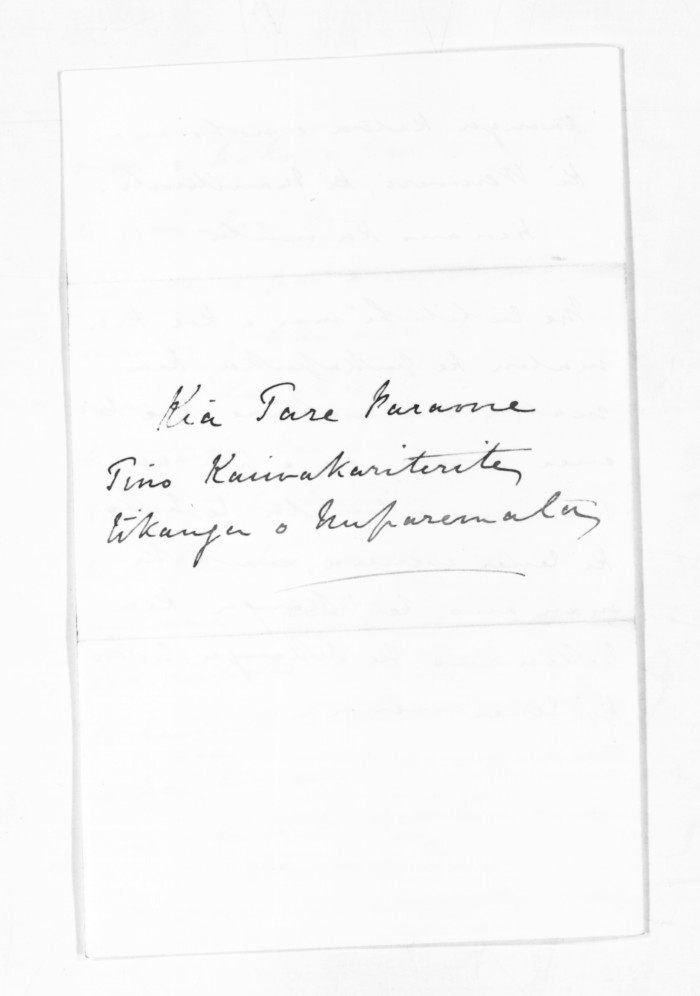 Kia Tare Paraone
Tino Kaiwakariterite
tikanga o Nuparemata